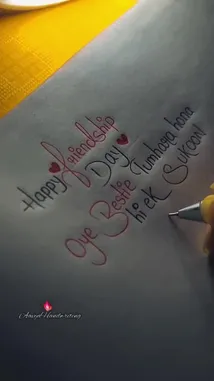 Happy friendship
Day
Oye Bestie Tumhara hona
hi ek Sukoon